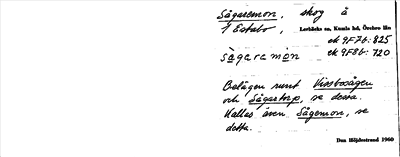 Sågaremon, skog å
1 Estabo, Lerbäcks sn, Kumla hd, Örebro län
ek 9F7b: 825
ek 9F8b: 720
sàgaremòn
Belägen runt Vissbosågen
och Sågartorp, se dessa.
Kallas även Sågemon, se
detta.
Dan Höjdestrand 1960